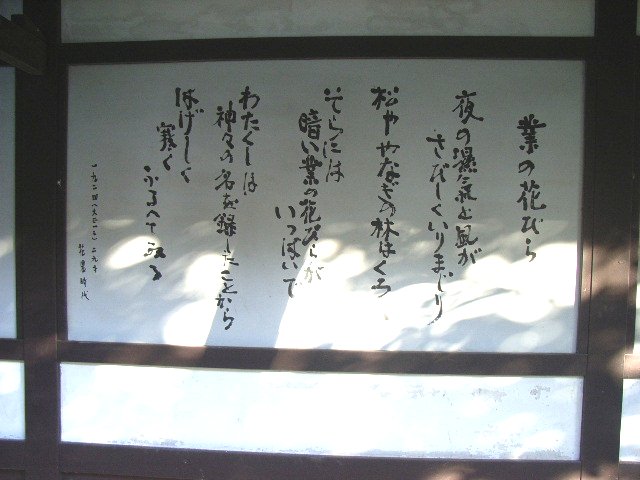 業の花びら
夜の濕氣と風が
さびしくいりまじり
松ややなぎの林はくろく
そらには
暗い業の花びらが
いっぱいで
わたくしは
神々の名を録したことから
はげしく
寒く
ふるへてゐる
一九二四(大正十三)二九才